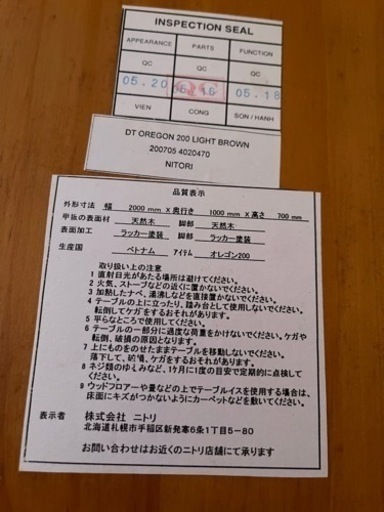 INSPECTION SEAL
APPEARANCE PARTS FUNCTION
QC QC QC
05.20 05.18
VIEN CONG SON / HANH
DT OREGON 200 LIGHT BROWN
200705 4020470
NITORI
品質表示
外形寸法 幅 2000 mm X 奥行き 1000 mm X 高さ 700 mm
甲板の表面材 天然木 脚部 天然木
表面加工 ラッカー塗装 脚部 ラッカー塗装
生産国 ベトナム アイテム オレゴン200
取り扱い上の注意
1 直射日光があたる場所は避けてください。
2 火気、ストーブなどの近くに置かないでください。
3 加熱したナベ、湯沸しなどを直接置かないでください。
4 テーブルの上に立ったり、踏み台として使用しないでください。
転倒してケガをするおそれがあります。
5 平らなところで使用してください。
6 テーブルの一部分に過度な荷重をかけないでください。ケガや
転倒、破損の原因となります。
7 上にものをのせたままテーブルを移動しないでください。
落下して、破損、ケガをするおそれがあります。
8 ネジ類のゆるみなど、1ヶ月に1度の目安で定期的に点検して
ください。
9 ウッドフロアーや畳などの上でテーブルイスを使用する場合は、
床面にキズがつかないようにカーペットなどを敷いてください。
表示者 株式会社 ニトリ
北海道札幌市手稲区新発寒6条1丁目5-80
お問い合わせはお近くのニトリ店舗にて承ります